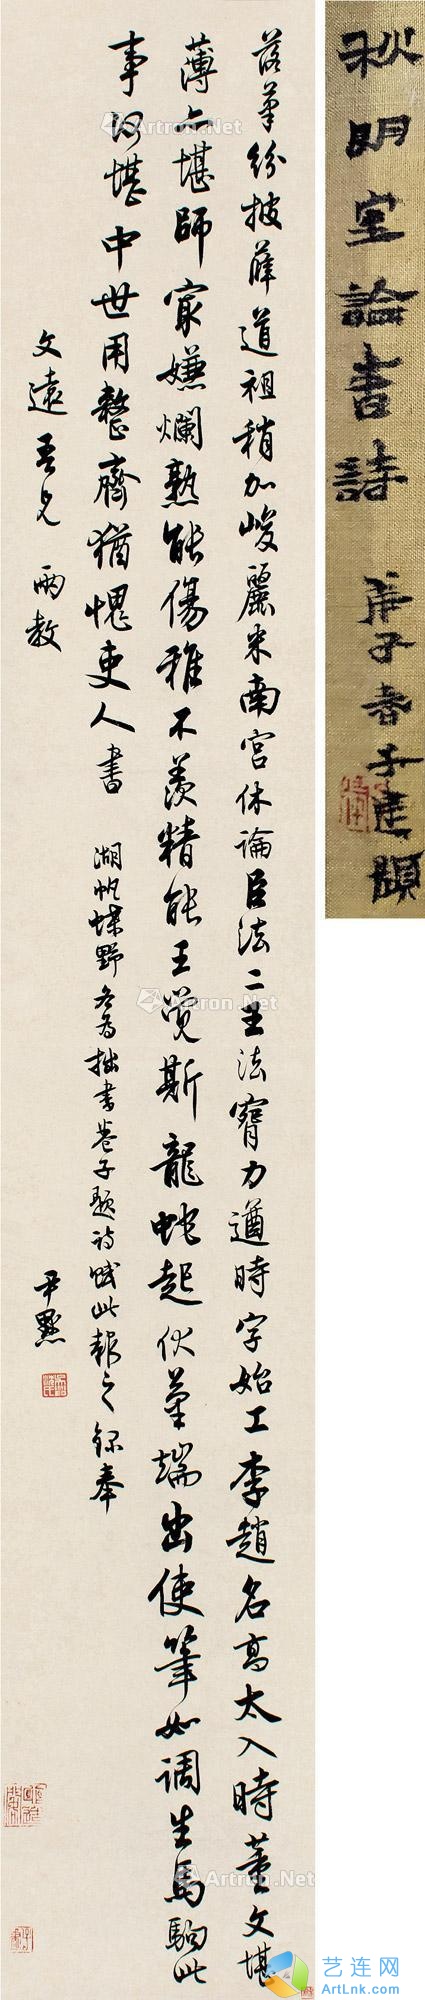 秋明室論書詩
庚子春子建題
落筆紛披薛道祖稍加峻麗米南宮休論臣法二王法力遒時字始工李趙名高太入時董文堪
薄亦堪師冣嫌爛熟能傷雅不羨精能王覺斯龍蛇起伏筆端出使筆如調生馬駒此
事何堪中世用整齊猶愧吏人書 湖帆蝶野各為拙書卷子題詩賦此報之錄奉
文遠吾兄 兩教
尹默
Artron.Net
艺连网
ArtLink.com